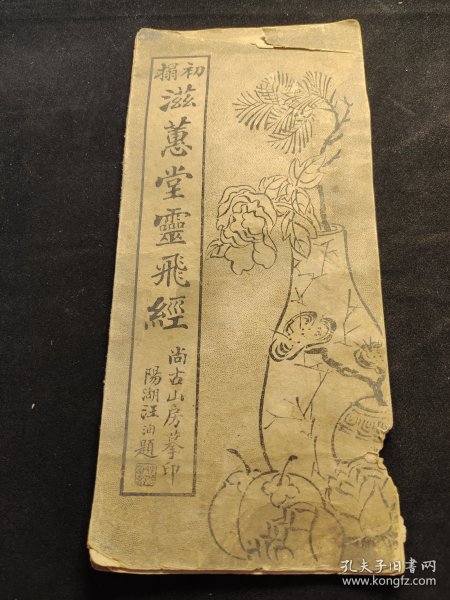 初搨
滋蕙堂靈飛經
尚古山房摹印
陽湖汪洵題
孔夫子旧书网
www.kongfz.com